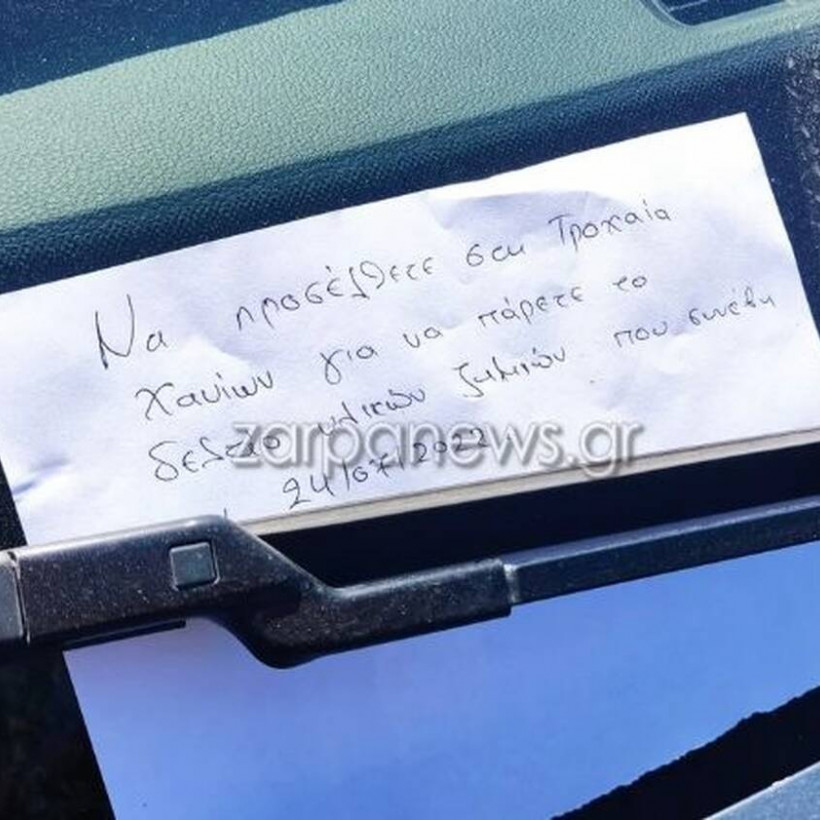 Να προσέλθετε στη Τροχαία
Χανίων για να πάρετε το
δελτίο υλικών ζημιών που συνέβη
24/07/2022.
zarpanews.gr